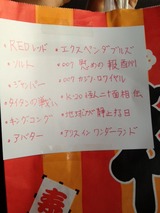 ・REDレッド
・ソルト
・ジャンパー
・タイタンの戦い
・キングコング
・アバター
・エクスペンダブルズ
・007 慰めの報酬
・007 カジノ・ロワイヤル
・K-20 怪人二十面相・伝
・地球が静止する日
・アリス イン ワンダーランド